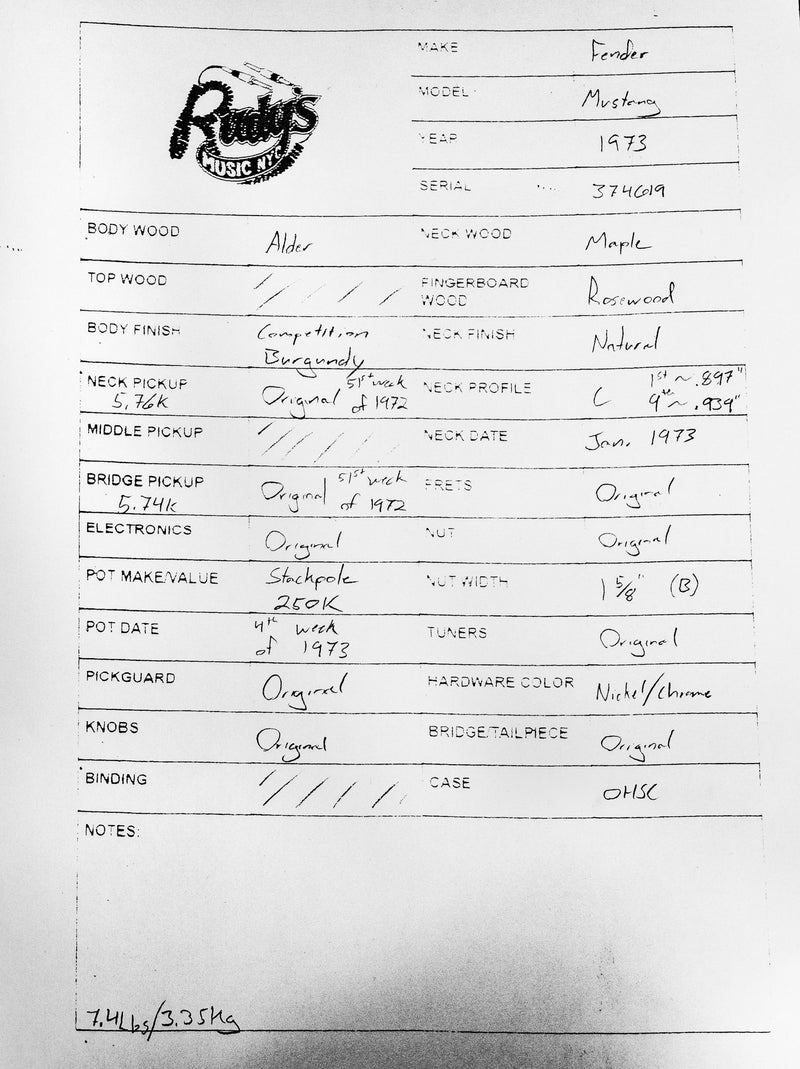 Rudy's
MUSIC NYC
MAKE Fender
MODEL Mustang
YEAR 1973
SERIAL 374619
BODY WOOD Alder NECK WOOD Maple
TOP WOOD / / / / FINGERBOARD
WOOD Rosewood
BODY FINISH Competition
Burgundy NECK FINISH Natural
NECK PICKUP
5.76K Original 51st week
of 1972 NECK PROFILE C 1st ~ .897"
9th ~ .939"
MIDDLE PICKUP / / / / NECK DATE Jan. 1973
BRIDGE PICKUP
5.74K Original 51st week
of 1972 FRETS Original
ELECTRONICS Original NUT Original
POT MAKE/VALUE Stackpole
250K NUT WIDTH 1 5/8" (B)
POT DATE 4th week
of 1973 TUNERS Original
PICKGUARD Original HARDWARE COLOR Nickel/Chrome
KNOBS Original BRIDGE/TAILPIECE Original
BINDING / / / / CASE OHSC
NOTES:
7.4Lbs/3.35Kg